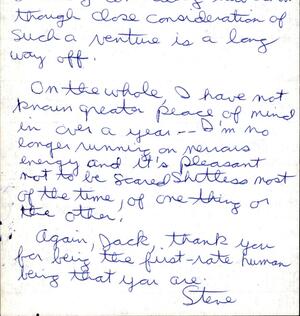 though close consideration of
such a venture is a long
way off.
On the whole I have not
known greater peace of mind
in over a year -- I'm no
longer running on nervous
energy and it's pleasant
not to be scared shitless most
of the time, of one thing or
the other.
Again, Jack, thank you
for being the first-rate human
being that you are.
Steve